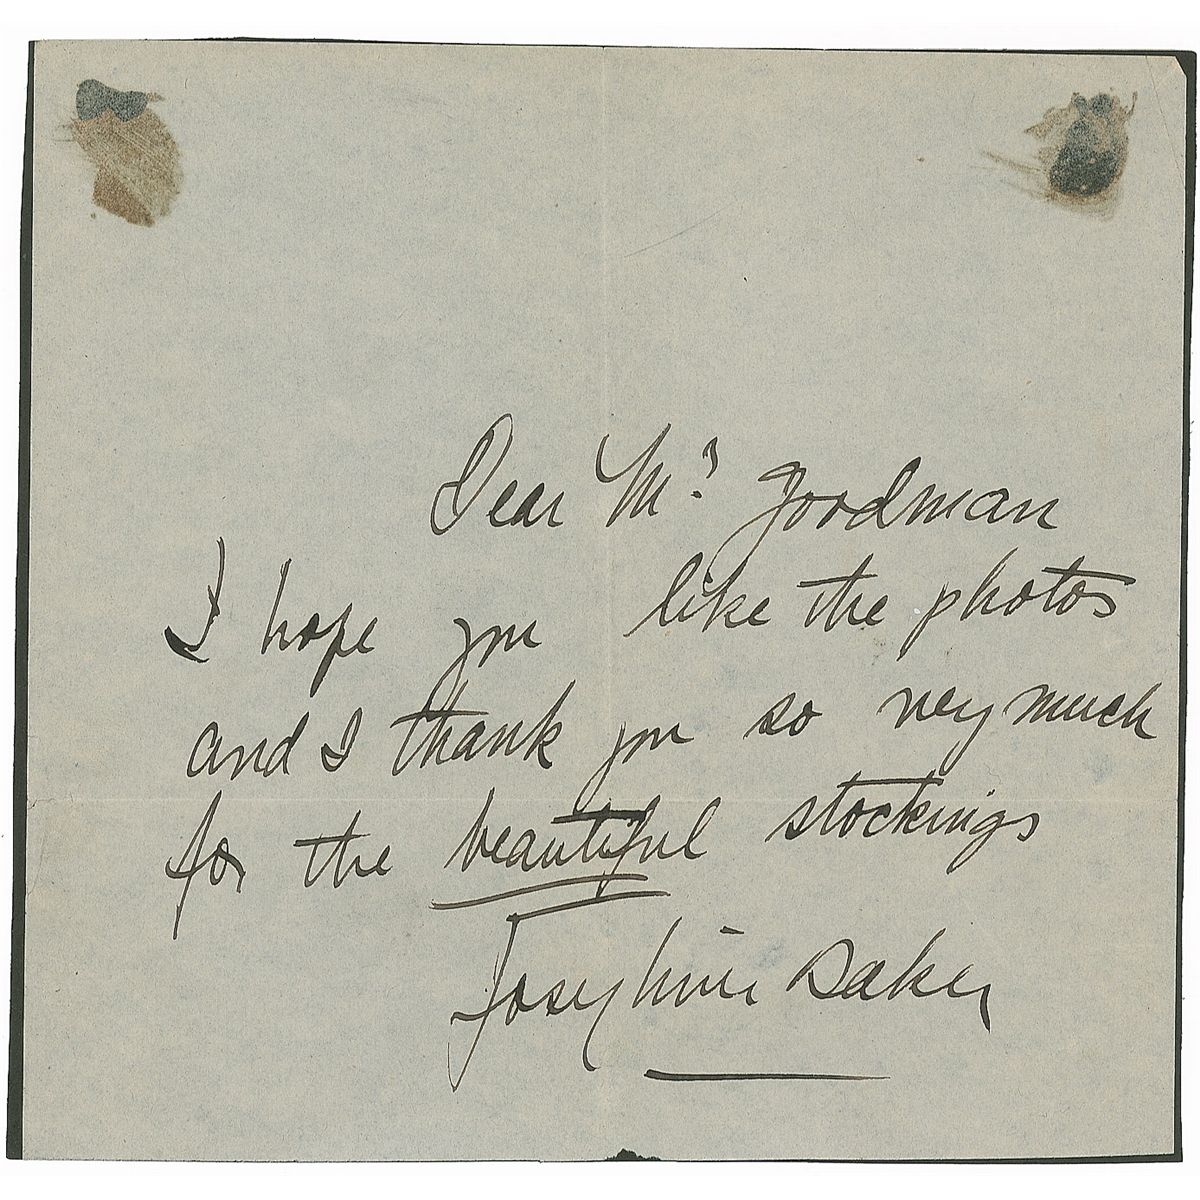 Dear Mr. Goodman
I hope you like the photos
and I thank you so very much
for the beautiful stockings
Josephine Baker